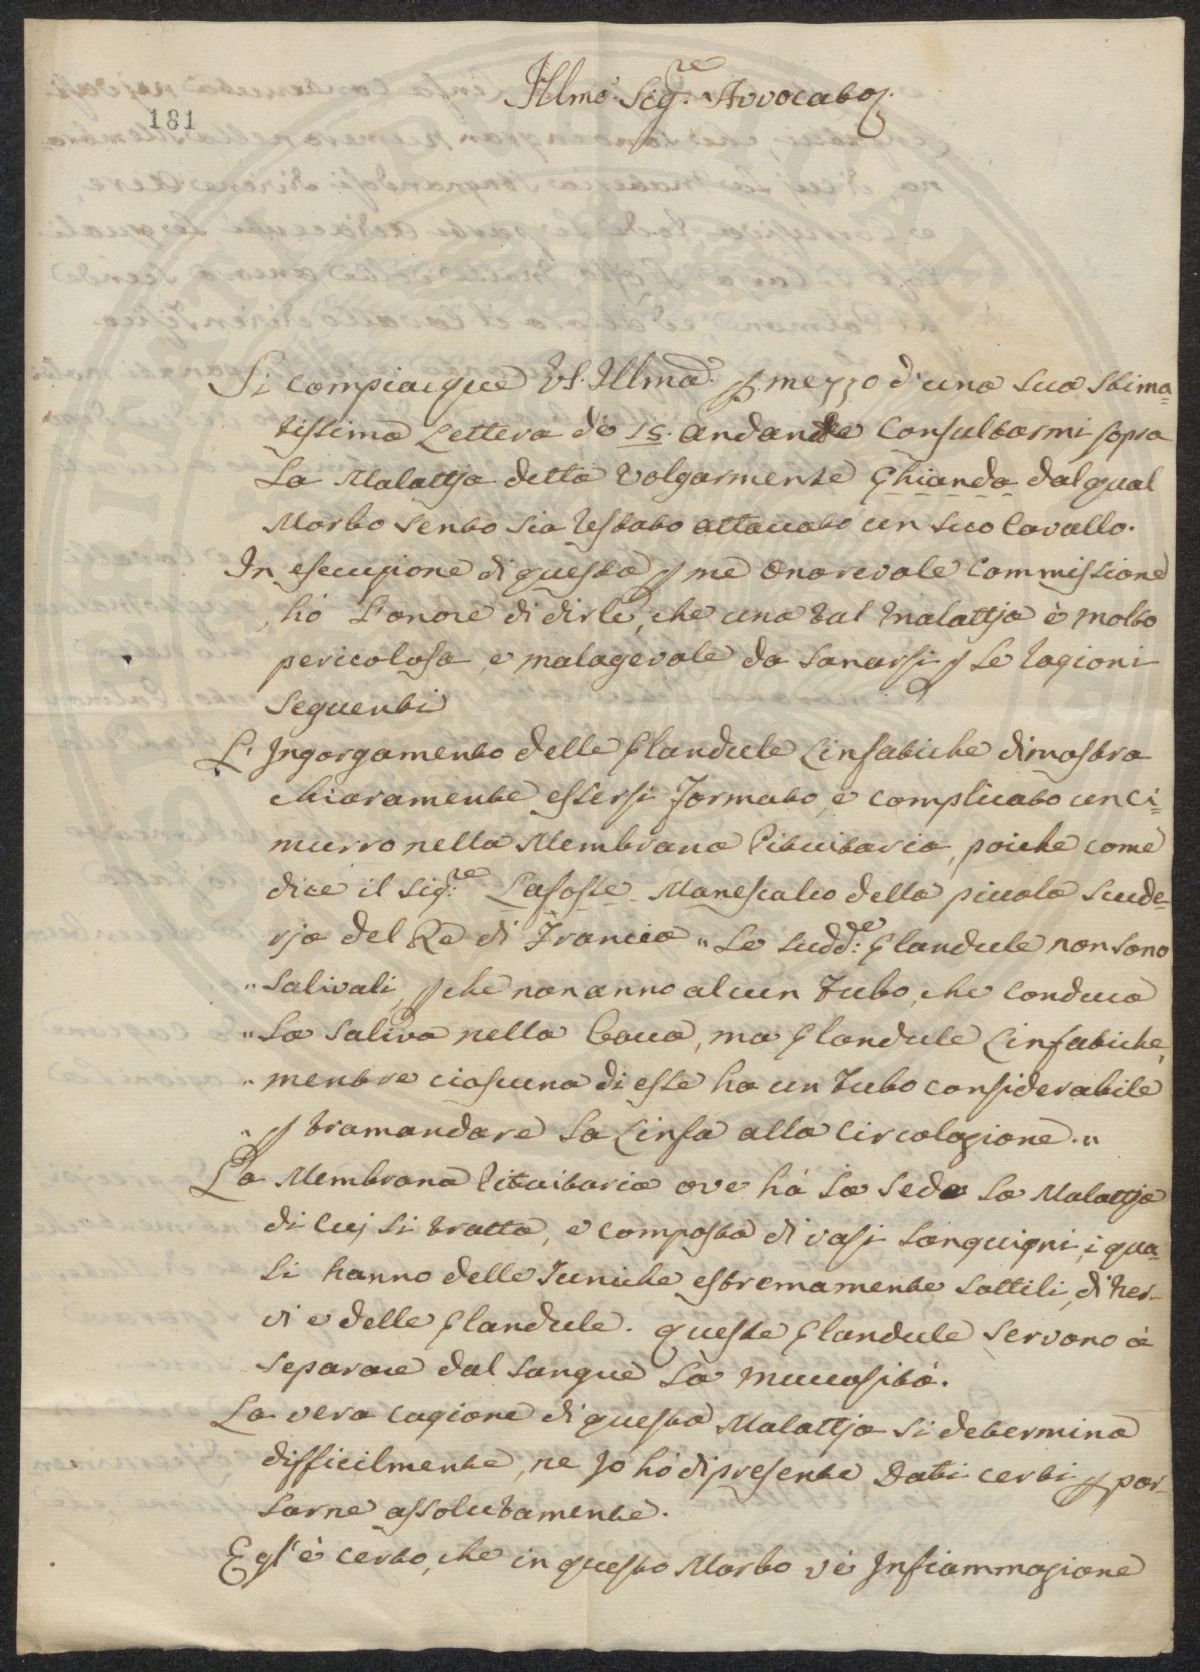 Illmo. Sig.re Avvocato.
181
Si compiacque VS. Illma. p. mezzo d'una sua stima=
tissima Lettera de 15. andante Consultarmi sopra
La Malattja detta Volgarmente Ghianda dal qual
Morbo sento sia restato attaccato un suo Cavallo.
In esecuzione di questa p me onorevole Commissione
hò L'onore di dirle, che una tal Malattja è molto
pericolosa, e malagevole da sanarsi p Le ragioni
seguenti
L' Ingorgamento delle Glandule Linfatiche dimostra
chiaramente essersi formato, e complicato un ci=
murro nella Membrana Pituitaria, poiche come
dice il Sig.re Lafosse Manescalco della piccola scude=
rja del Re di Francia " Le sudd.e Glandule non sono
" salivali, p che non anno alcun Tubo, che conduca
" La saliva nella bocca, ma Glandule Linfatiche,
" mentre ciascuna di esse ha un Tubo considerabile
" p tramandare La Linfa alla Circolazione. "
La Membrana Pituitaria ove hà La sede La Malattja
di cuj si tratta, e composta di vasi sanguigni, i qua=
li hanno delle Tuniche estremamente sottili, di ner=
vi e delle Glandule. queste Glandule servono à
separare dal sangue La muccosità.
La vera cagione di questa Malattja si determina
difficilmente, ne Jo hò di presente Dati certi p par=
larne assolutamente.
Egl'è certo, che in questo Morbo v'è Infiammazione